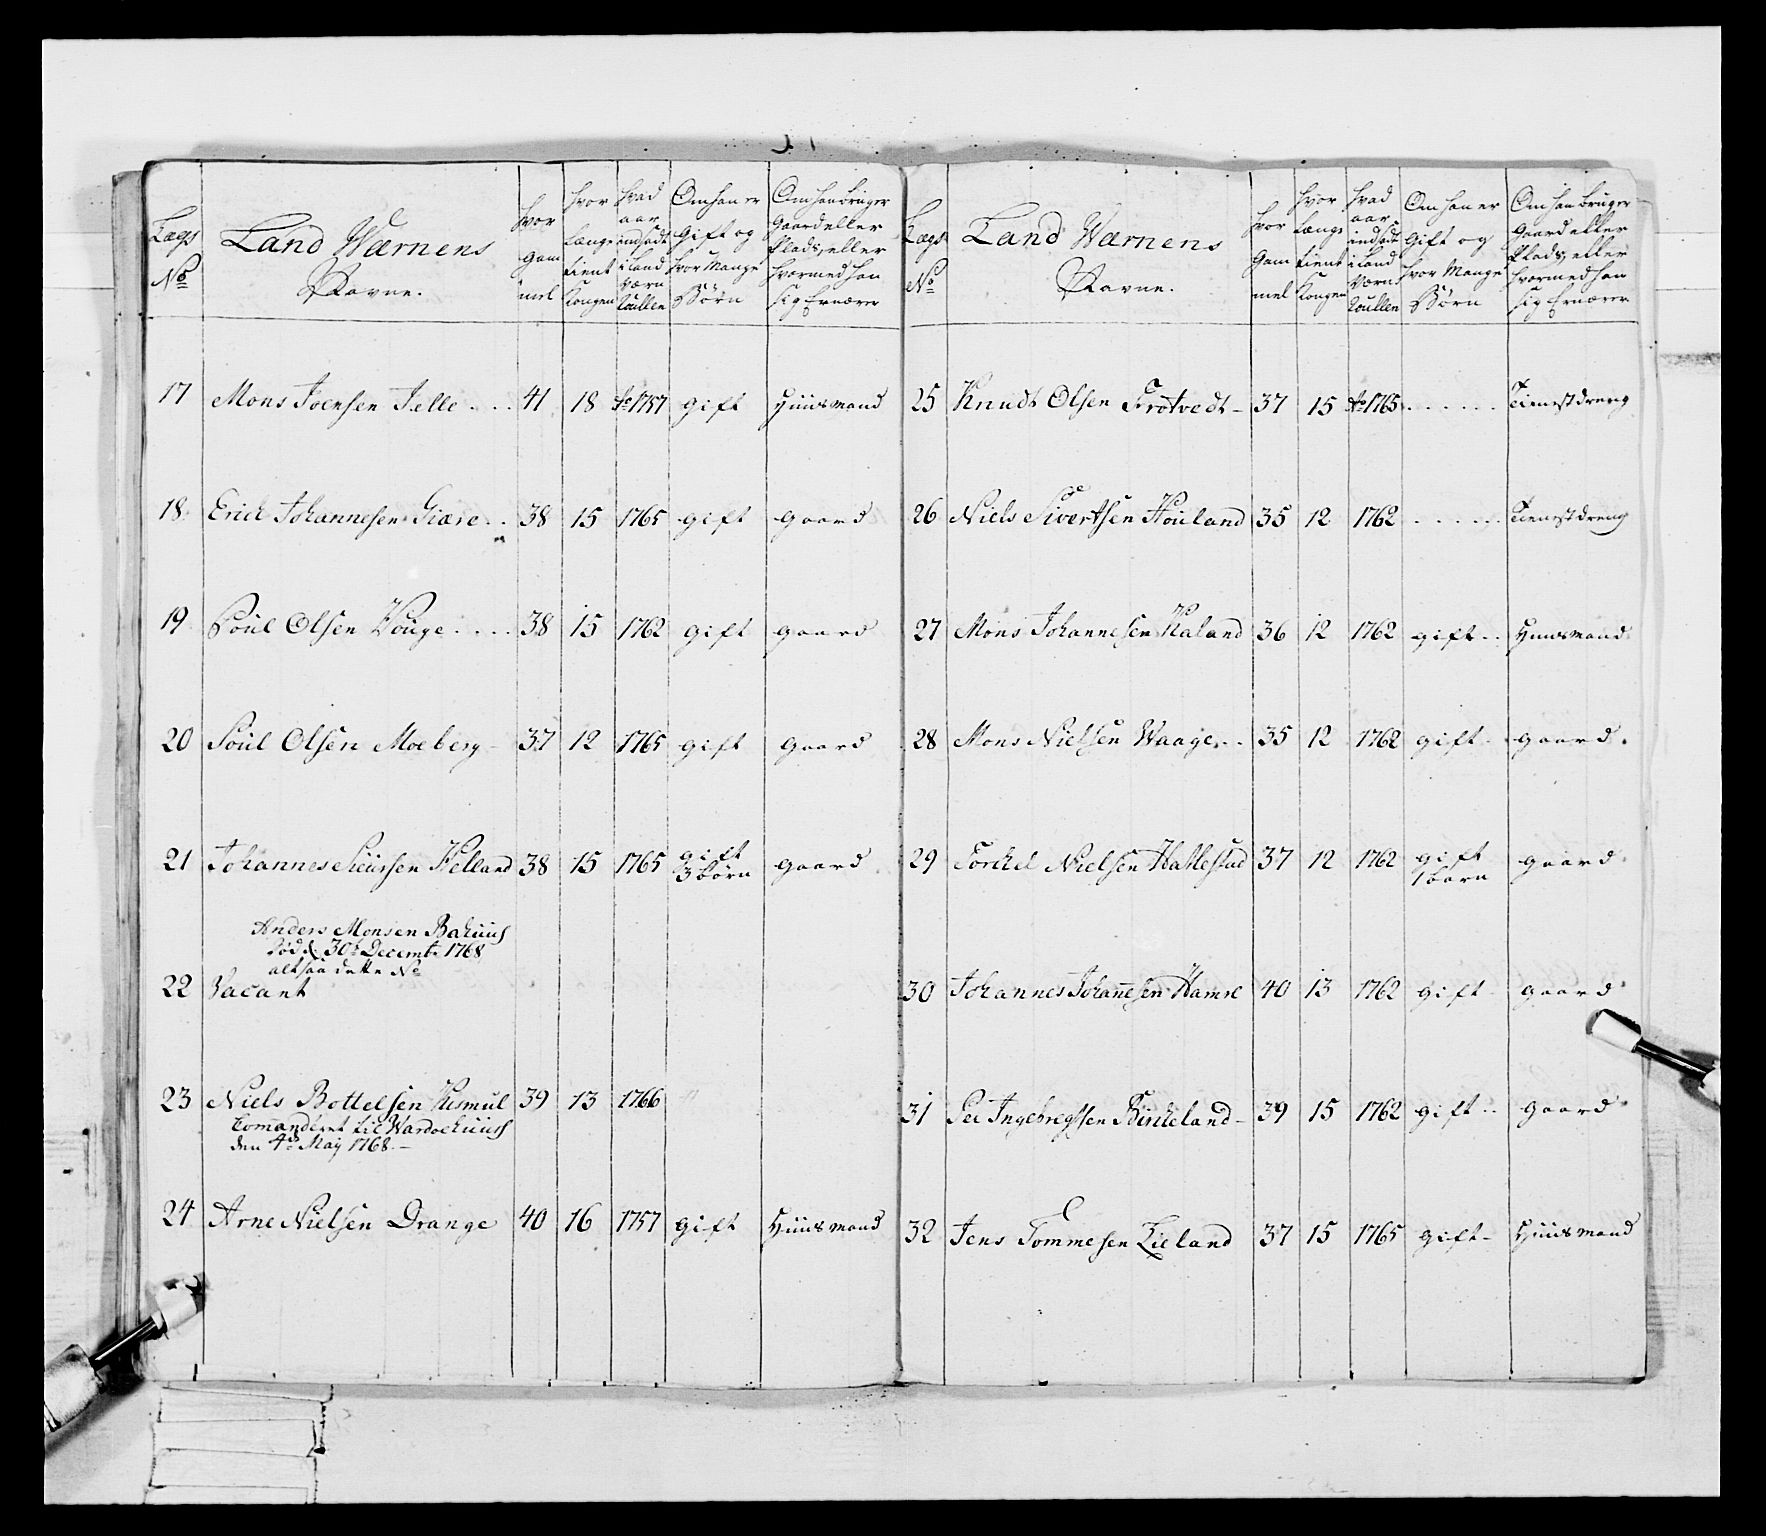 Lægs No
Land Wærnens Navne.
hvor gammel
hvor Længe tient Kongen
hvad aar indsadt i Land Værns Roullen
Om han er gift og hvor Mange Børn
Om han bruger Gaard eller Plads, eller hvormed han sig Ernærer
17 Mons Joensen Telle . . . 41 18 Ao 1757 gift Huusmand
18 Erich Johannesen Giære . . 38 15 1765 gift gaard
19 Poul Olsen Kouge . . . . 38 15 1762 gift gaard
20 Poul Olsen Moeberg - 37 12 1765 gift gaard
21 Johannes Siursen Helland 38 15 1765 gift 3 børn gaard
Anders Monsen Bakuus
død d: 30te Decembr 1768
altsaa dette No
22 Vacant
23 Niels Bottelsen Kismul 39 13 1766
Comanderet til Wardoehuus
den 4de Maij 1768. -
24 Arne Nielsen Drange 40 16 1757 gift Huusmand
Lægs No
Land Wærnens Navne.
hvor Gammel
hvor Længe tient Kongen
hvad aar indsadt i Land Værns Roullen
Om han er Gift og hvor Mange Børn
Om han bruger Gaard eller Plads, eller hvormed han sig Ernærer
25 Knudt Olsen Trotvedt - 37 15 Ao 1765 . . . . . . Tienestdreng
26 Niels Sivertsen Houland 35 12 1762 . . . . . . Tienestdreng
27 Mons Johannesen Haland 36 12 1762 gift . . Huusmand
28 Mons Nielsen Waage . . . 35 12 1762 gift . gaard .
29 Torkel Nielsen Hatlestad 37 12 1762 gift 1 barn gaard
30 Johannes Johannesen Hamre 40 13 1762 gift gaard
31 Per Ingebregtsen Birkeland - 39 15 1762 gift . . gaard
32 Jens Tommesen Lieland 37 15 1765 gift - Huusmand